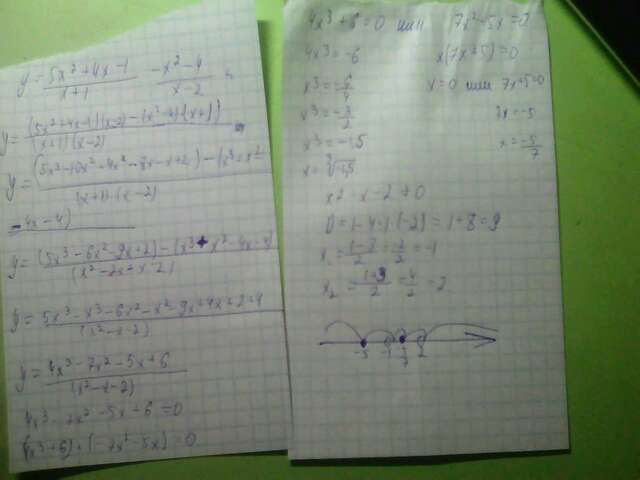 y = (5x² + 4x - 1)/(x + 1) - (x² - 4)/(x - 2)
y = ((5x² + 4x - 1)(x - 2) - (x² - 4)(x + 1))/((x + 1)(x - 2))
y = (5x³ - 10x² - 4x² - 8x - x + 2) - (x³ + x²
- 4x - 4)
(x + 1)·(x - 2)
y = ((5x³ - 6x² - 9x + 2) - (x³ + x² - 4x - 4))/(x² - 2x + x - 2)
y = (5x³ - x³ - 6x² - x² - 9x + 4x + 2 + 4)/(x² - x - 2)
y = (4x³ - 7x² - 5x + 6)/(x² - x - 2)
4x³ - 7x² - 5x + 6 = 0
(4x³ + 6) + (-7x² - 5x) = 0
4x³ + 6 = 0 или 7x² - 5x = 0
4x³ = -6 x(7x + 5) = 0
x³ = -6/4 x = 0 или 7x + 5 = 0
x³ = -3/2 7x = -5
x³ = -1,5 x = -5/7
x = ∛-1,5
x² - x - 2 ≠ 0
D = 1 - 4·1·(-2) = 1 + 8 = 9
x₁ = (1 - 3)/2 = -2/2 = -1
x₂ = (1 + 3)/2 = 4/2 = 2
-1 2
7